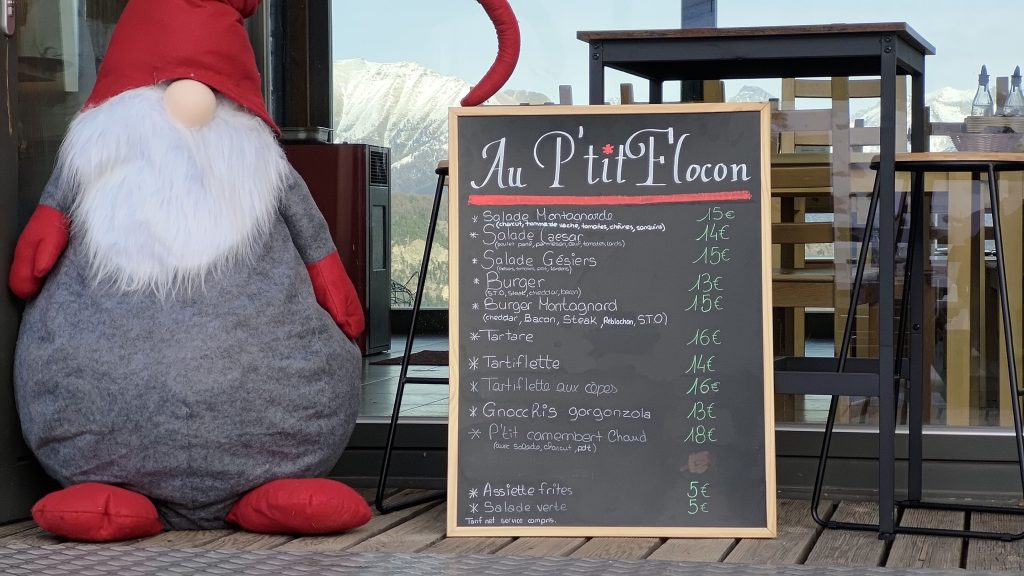 Au P'tit Flocon
* Salade Montagnarde 15€
(charcut, tomme de vache, tomates, chèvres, sanquins)
* Salade Caesar 14€
(poulet pané, parmesan, œuf, tomates, lards)
* Salade Gésiers 15€
* Burger 13€
(S.T.O, steak, cheddar, bacon)
* Burger Montagnard 15€
(cheddar, Bacon, Steak, Reblochon, S.T.O)
* Tartare 16€
* Tartiflette 14€
* Tartiflette aux cèpes 16€
* Gnocchis gorgonzola 13€
* P'tit camembert Chaud 18€
(avec salade, charcut, pdt)
* Assiette frites 5€
* Salade verte 5€
Tarif net service compris.